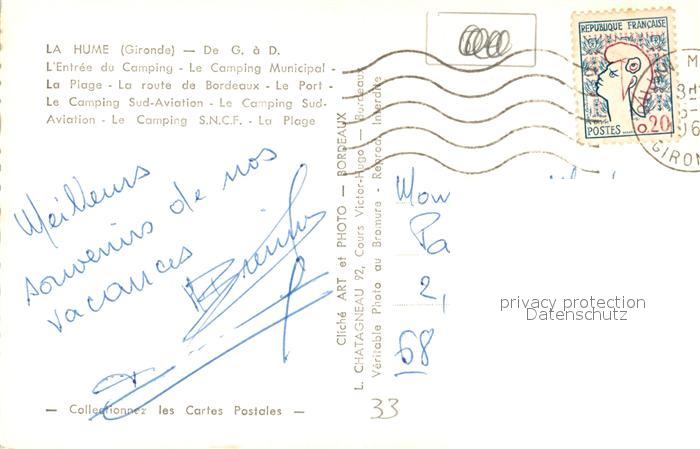 LA HUME (Gironde) — De G. à D.
L'Entrée du Camping - Le Camping Municipal -
La Plage - La route de Bordeaux - Le Port -
Le Camping Sud-Aviation - Le Camping Sud-
Aviation - Le Camping S.N.C.F. - La Plage
REPUBLIQUE FRANÇAISE
POSTES
0,20
GIRON
Meilleurs
souvenirs de nos
vacances
Cliché ART et PHOTO — BORDEAUX
L. CHATAGNEAU 92, Cours Victor-Hugo — Bordeaux
Véritable Photo au Bromure - Reprod. Interdite
Mon
Pa
2,
68
privacy protection
Datenschutz
— Collectionnez les Cartes Postales —
33